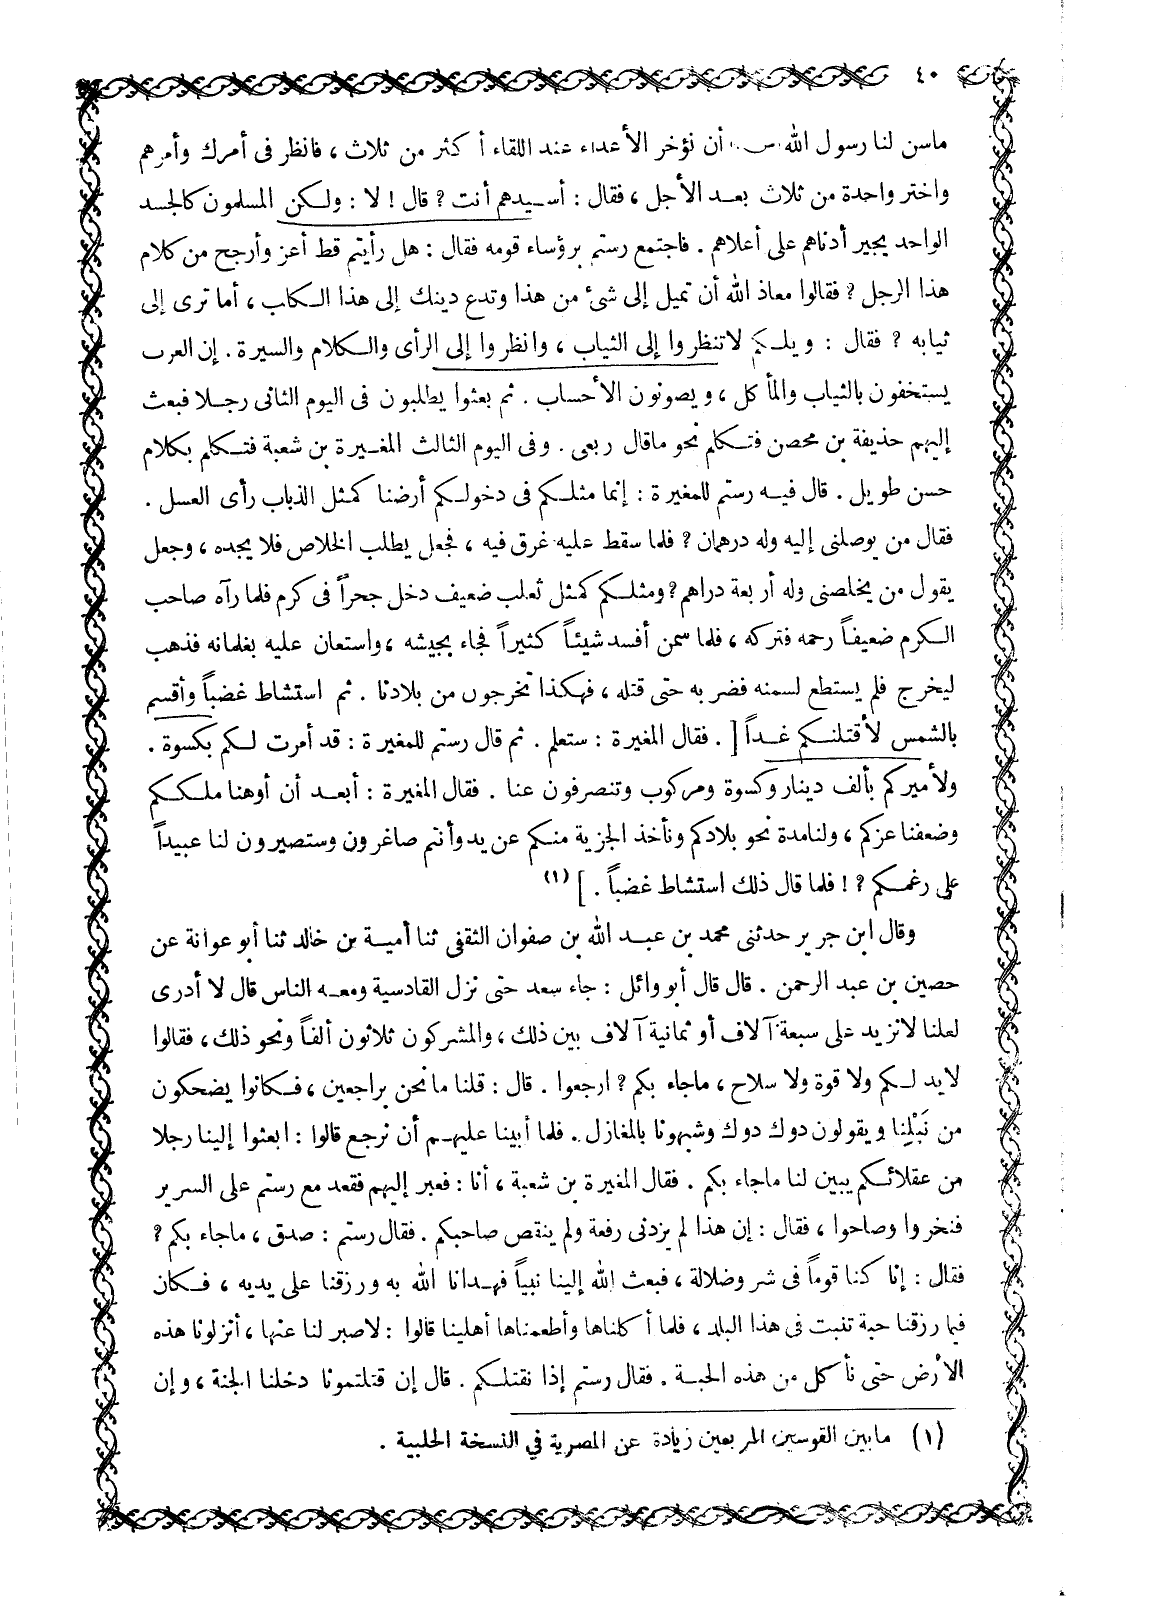 ٤٠
ماسن لنا رسول الله أن نؤخر الأعداء عند اللقاء أكثر من ثلاث ، فانظر فى أمرك وأمرهم
واختر واحدة من ثلاث بعد الأجل ، فقال : أسيدهم أنت ? قال ! لا : ولكن المسلمون كالجسد
الواحد يجير أدناهم على أعلاهم . فاجتمع رستم برؤساء قومه فقال : هل رأيتم قط أعز وأرجح من كلام
هذا الرجل ? فقالوا معاذ الله أن تميل إلى شئ من هذا وتدع دينك إلى هذا الكاب ، أما ترى إلى
ثيابه ? فقال : ويلكم لاتنظروا إلى الثياب ، وانظروا إلى الرأى والكلام والسيرة . إن العرب
يستخفون بالثياب والمأكل ، ويصونون الأحساب . ثم بعثوا يطلبون فى اليوم الثانى رجلا فبعث
إليهم حذيفة بن محصن فتكلم نحو ماقال ربعى . وفى اليوم الثالث المغيرة بن شعبة فتكلم بكلام
حسن طويل . قال فيه رستم للمغيرة : إنما مثلكم فى دخولكم أرضنا كمثل الذباب رأى العسل .
فقال من يوصلنى إليه وله درهمان ? فلما سقط عليه غرق فيه ، فجعل يطلب الخلاص فلا يجده ، وجعل
يقول من يخلصنى وله أربعة دراهم ? ومثلكم كمثل ثعلب ضعيف دخل جحراً فى كرم فلما رآه صاحب
الكرم ضعيفاً رحمه فتركه ، فلما سمن أفسد شيئاً كثيراً فجاء بجيشه ، واستعان عليه بغلمانه فذهب
ليخرج فلم يستطع لسمنه فضربه حتى قتله ، فهكذا تخرجون من بلادنا . ثم استشاط غضباً وأقسم
بالشمس لأقتلنكم غداً [ . فقال المغيرة : ستعلم . ثم قال رستم للمغيرة : قد أمرت لكم بكسوة .
ولأميركم بألف دينار وكسوة ومركوب وتنصرفون عنا . فقال المغيرة : أبعد أن أوهنا ملككم
وضعفنا عزكم ، ولنامدة نحو بلادكم ونأخذ الجزية منكم عن يد وأنتم صاغرون وستصيرون لنا عبيداً
على رغمكم ? ! فلما قال ذلك استشاط غضباً . ] (١)
وقال ابن جرير حدثنى محمد بن عبد الله بن صفوان الثقفى ثنا أمية بن خالد ثنا أبو عوانة عن
حصين بن عبد الرحمن . قال قال أبو وائل : جاء سعد حتى نزل القادسية ومعه الناس قال لا أدرى
لعلنا لانزيد على سبعة آلاف أو ثمانية آلاف بين ذلك ، والمشركون ثلاثون ألفاً ونحو ذلك ، فقالوا
لايد لكم ولا قوة ولا سلاح ، ماجاء بكم ? ارجعوا . قال : قلنا مانحن براجعين ، فكانوا يضحكون
من نَبْلِنا ويقولون دوك دوك وشبهونا بالمغازل . فلما أبينا عليهم أن نرجع قالوا : ابعثوا إلينا رجلا
من عقلائكم يبين لنا ماجاء بكم . فقال المغيرة بن شعبة ، أنا : فعبر إليهم فقعد مع رستم على السرير
فنخروا وصاحوا ، فقال : إن هذا لم يزدنى رفعة ولم ينقص صاحبكم . فقال رستم : صدق ، ماجاء بكم ?
فقال : إنا كنا قوماً فى شر وضلالة ، فبعث الله إلينا نبياً فهدانا الله به ورزقنا على يديه ، فكان
فيما رزقنا حبة تنبت فى هذا البلد ، فلما أكلناها وأطعمناها أهلينا قالوا : لاصبر لنا عنها ، أنزلونا هذه
الأرض حتى نأكل من هذه الحبة . فقال رستم إذا نقتلكم . قال إن قتلتمونا دخلنا الجنة ، وإن
(١) مابين القوسين المربعين زيادة عن المصرية في النسخة الحلبية .